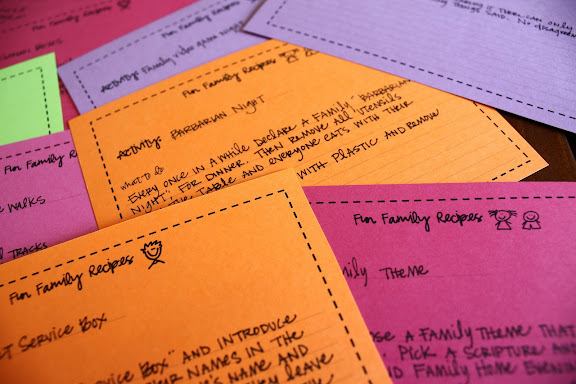 THERE CAN ONLY
THINGS SAID. NO
Fun Family Recipes
ACTIVITY: Family
Fun Family Recipes
ACTIVITY: BARBARIAN NIGHT
WHAT TO DO
EVERY ONCE IN A WHILE DECLARE A FAMILY "BARBARIAN
NIGHT" FOR DINNER. THEN REMOVE ALL UTENSILS
TABLE AND EVERYONE EATS WITH THEIR
WITH PLASTIC AND REMOVE
Fun Family R
WALKS
TRACKS
Fun Family Recipes
T SERVICE BOX
VICE BOX" AND INTRODUCE
EIR NAMES IN THE
'S NAME AND
EY LEAVE
Fun Family Recipes
ily THEME
SE A FAMILY THEME THAT
PICK A SCRIPTURE AN
D FAMILY HOME EVENI